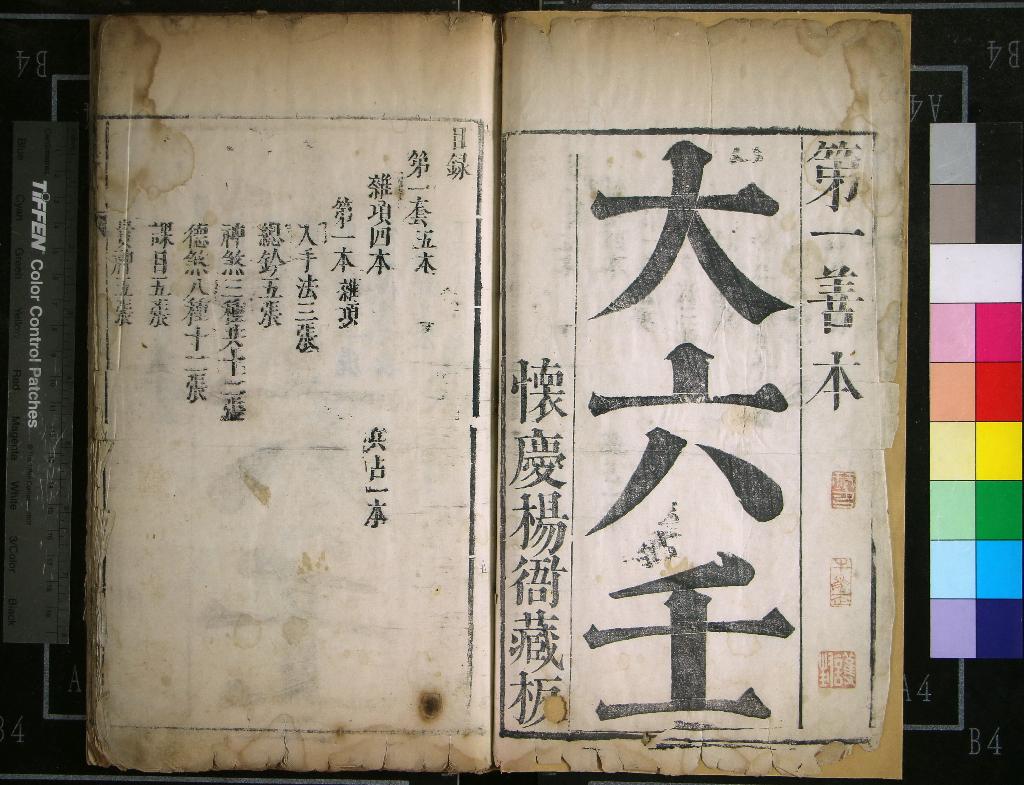 第一善本
大六壬
懷慶楊衙藏板
目錄
第一套五本
雜項四本
兵占一本
第一本雜項
入手法三張
總鈐五張
神煞三種共十二張
德煞八種十二張
課目五張
貴神五張
TIFFEN Color Control Patches
Blue Cyan Green Yellow Red Magenta White 3/Color Black
B4
A4
B4
A4
A4
B4
A4
B4